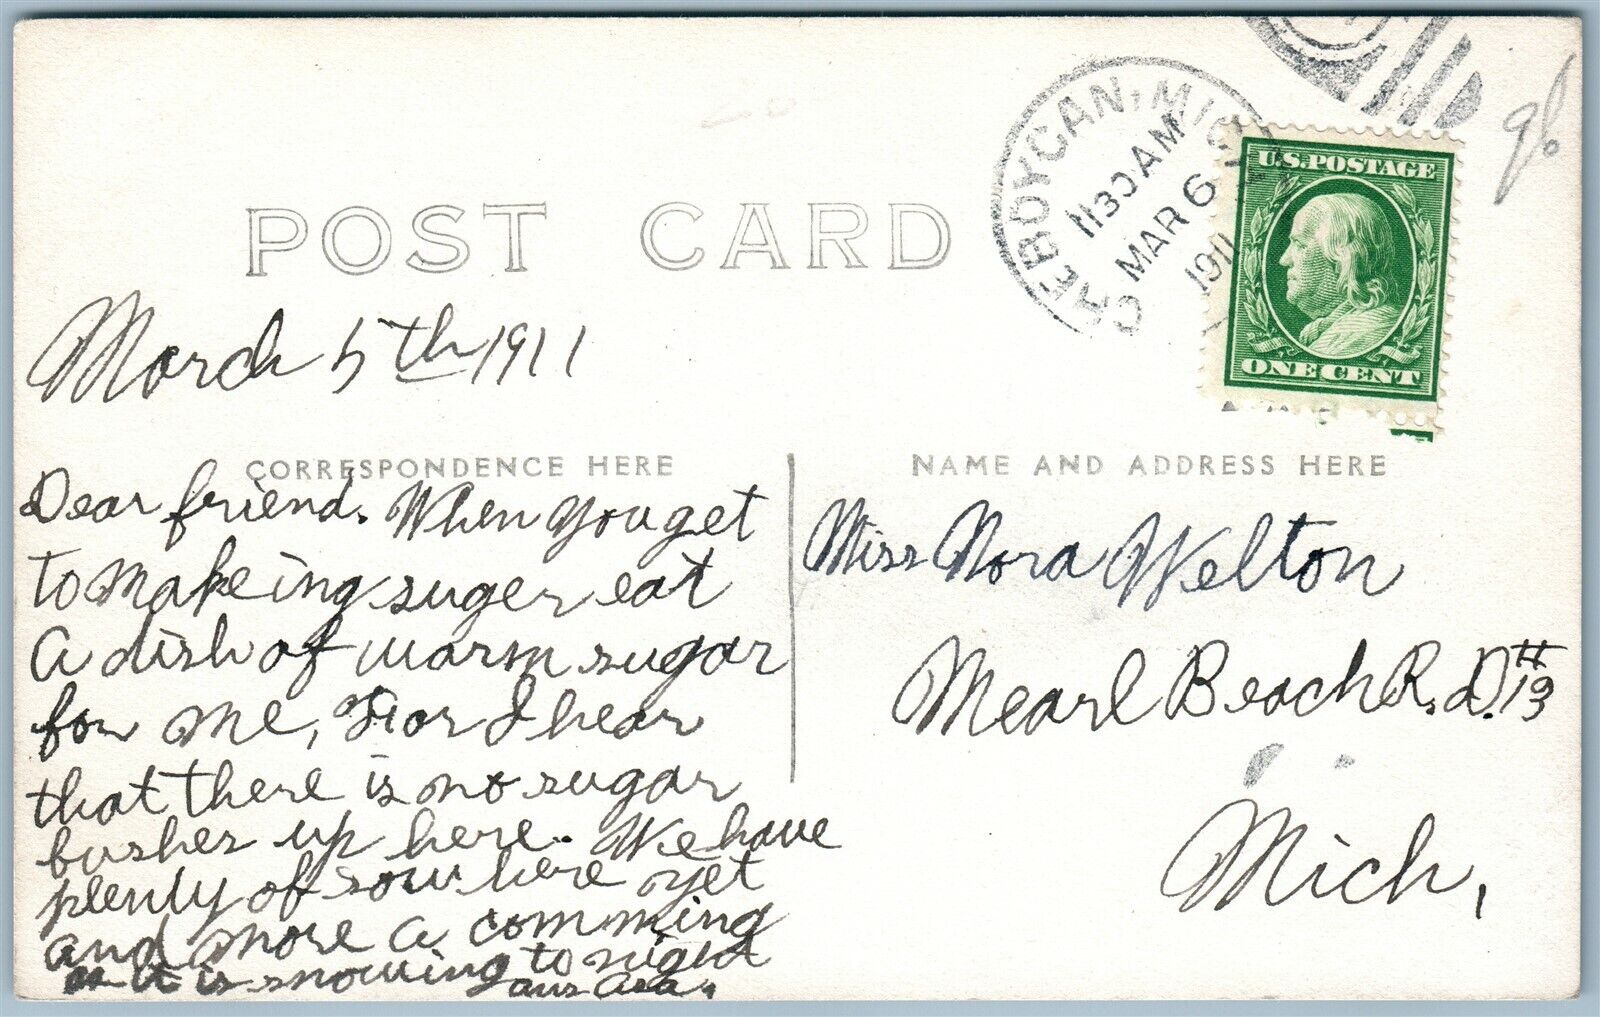 POST CARD
CHEBOYGAN, MICH
1130 AM
MAR 6
1911
U.S. POSTAGE
ONE CENT
March 5th 1911
CORRESPONDENCE HERE
NAME AND ADDRESS HERE
Dear friend. When you get
to makeing suger eat
a dish of warm sugar
for me, for I hear
that there is no sugar
bushes up here.. We have
plenty of snow here yet
and more a comming
as it is snowing to night
ans
Miss Nora Welton
Mearl Beach R. D. #13
Mich,